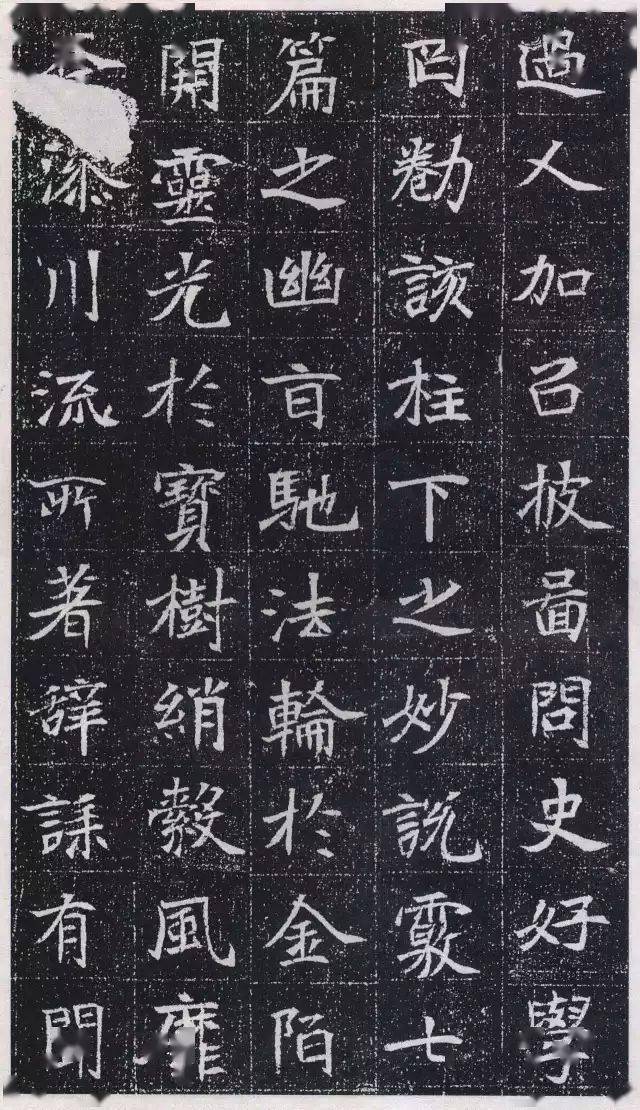 過人加召披啚問史好學
罔勌該柱下之妙說覈七
篇之幽旨馳法輪於金陌
開靈光於寶樹綃縠風靡
川流所著辞誄有聞